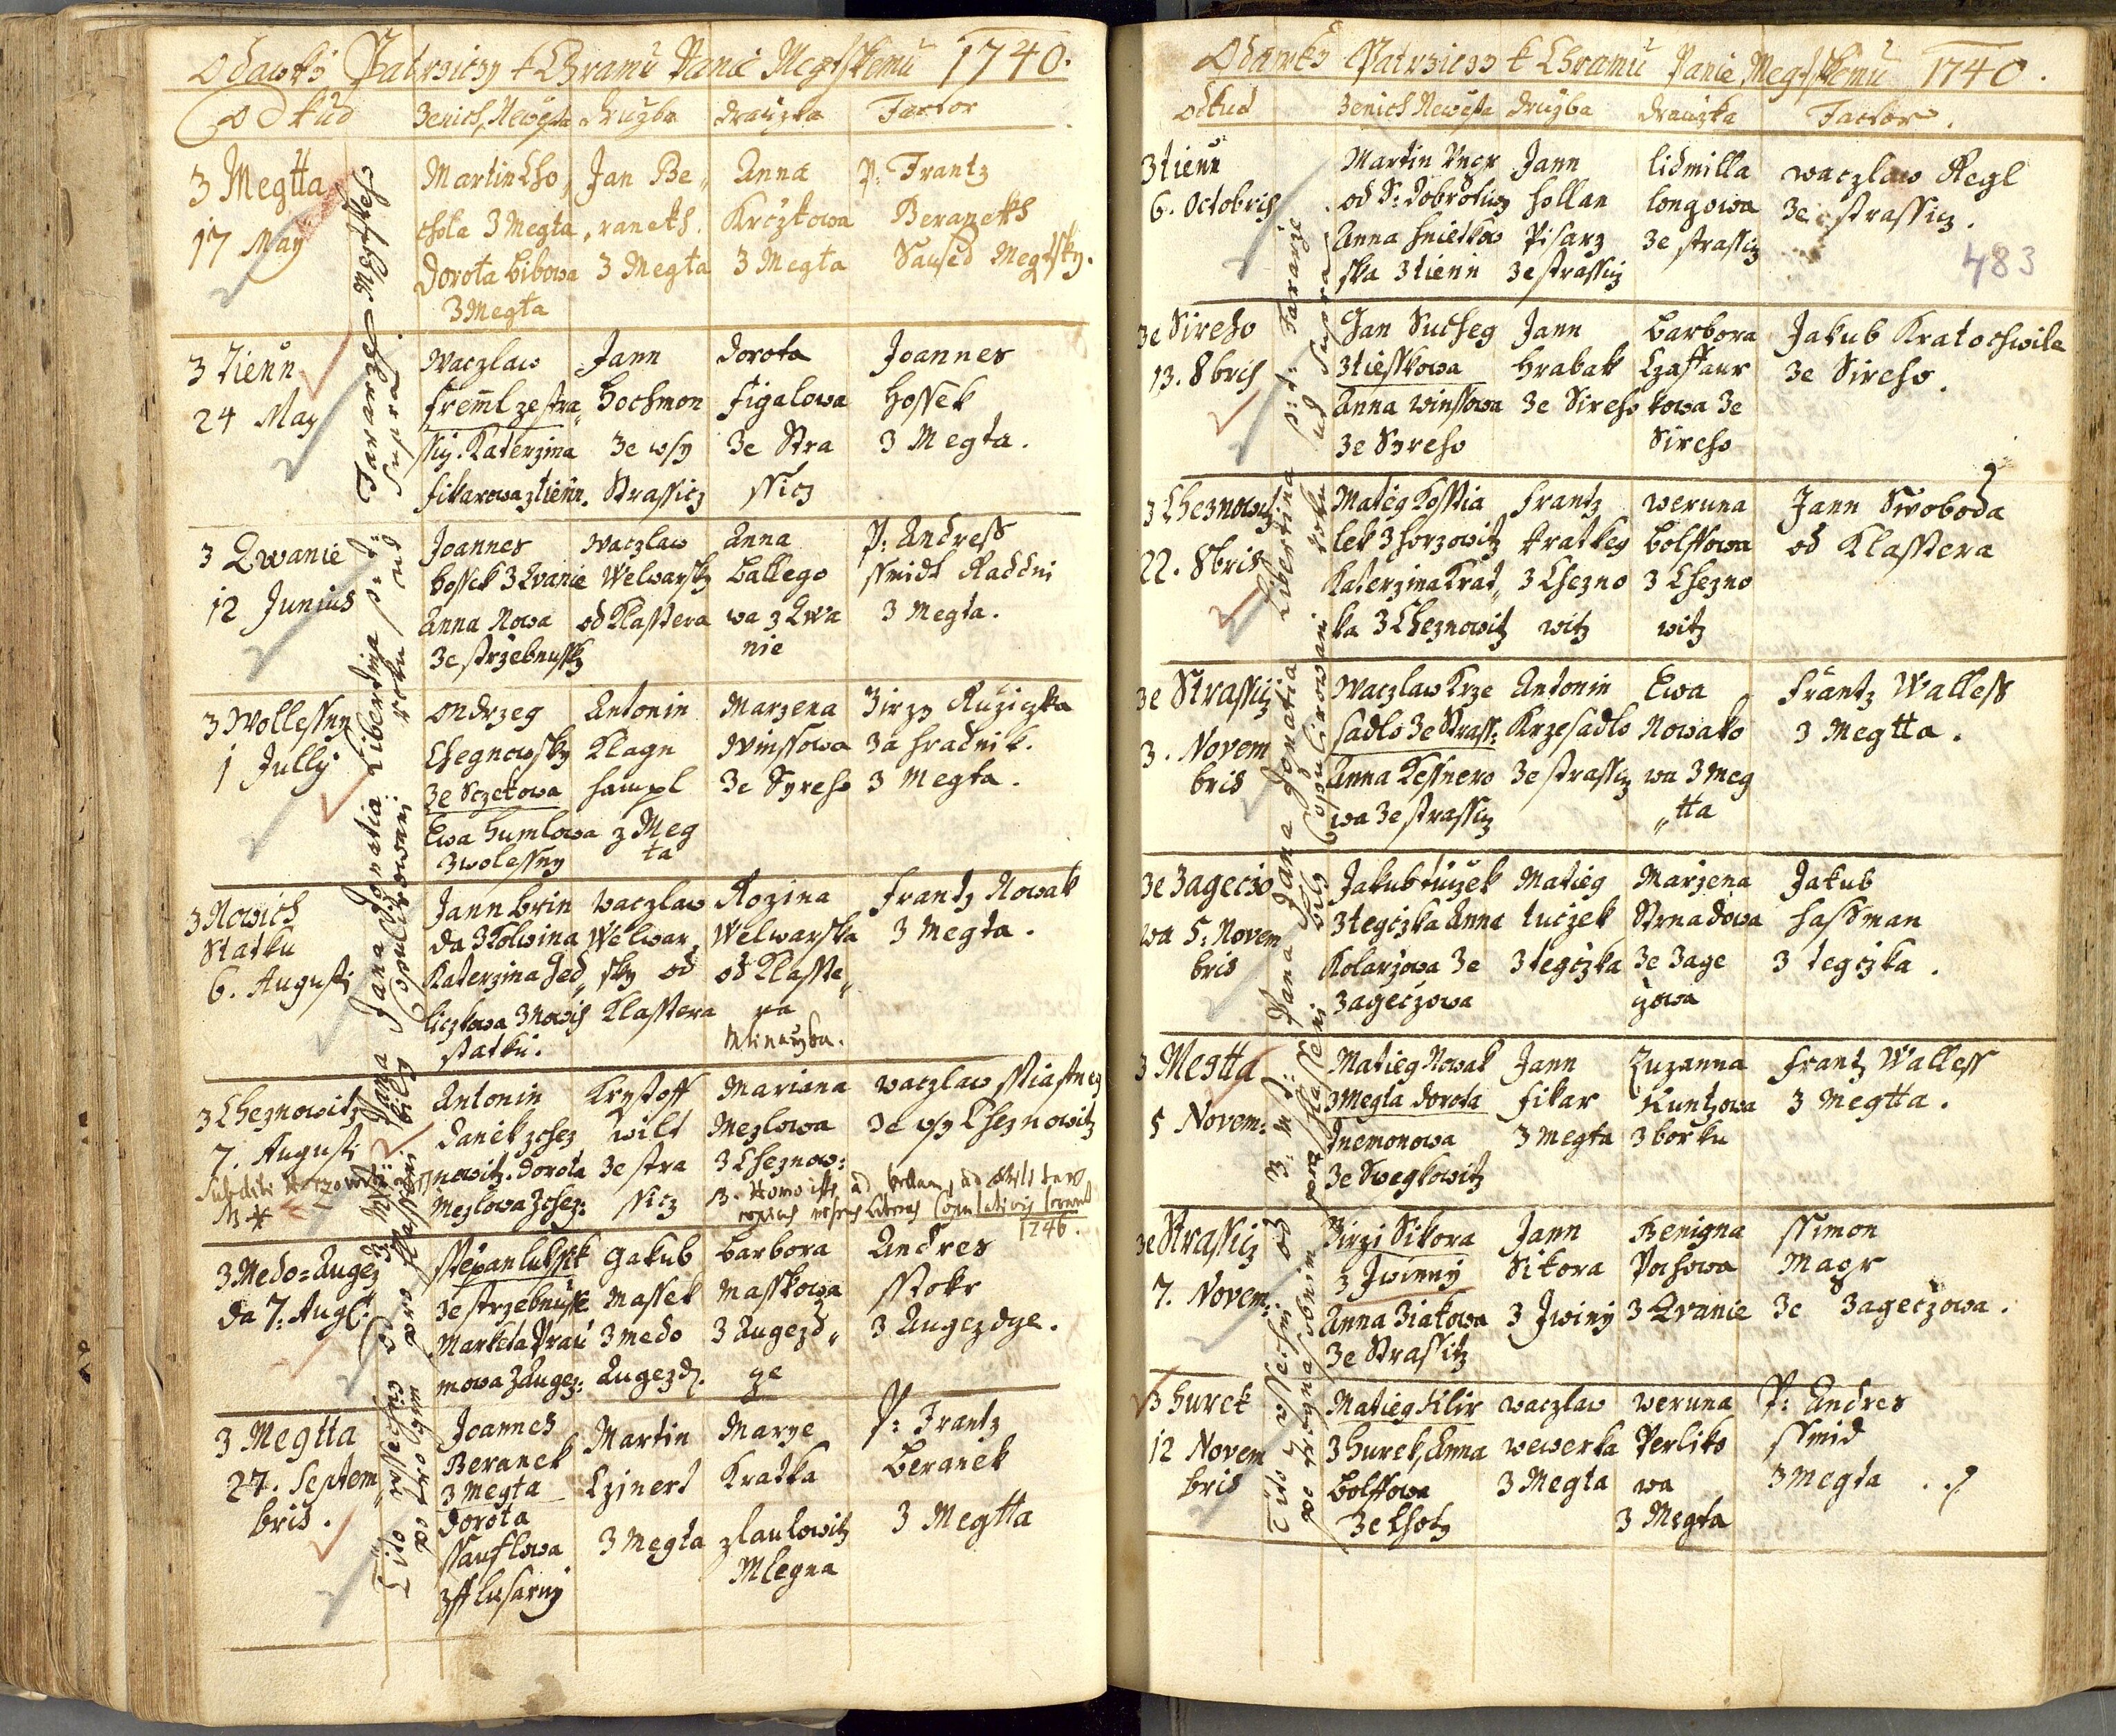 Odawky Patrziczy k Chramu Panie Megtskému 1740.
Odkud Zenich, Newesta Druzba Drauzka Factor
3 Megtta
17 May
Martin Cho„
chola 3 Megta
Dorota Bibowa
3 Megta
Jan Be„
raneks.
3 Megta
Anna
Krczkowa
3 Megta
P: Frantz
Beraneks
Saused Megtsky.
3 Tienn
24 May
Waczlaw
freml ze stra„
ssicz. Katerzina
fikarowa z tienn.
Jann
Hochmon
3e wsy
Strassicz
Dorota
Figalowa
3e Stra
ssicz
Joannes
Hossek
3 Megta.
3 Qwanie
12 Junius
Joannes
Hossek 3 Qvanie
Anna Nowa
3e strzebnussky
Waczlaw
Welwarsky
od Klasstera
Anna
Ballego
wa z Qwa
nie
P: Andress
ssmidt Raddni
3 Megta.
3 Wollessny
1 Jully
Ondrzeg
Chegnowsky
3e Sczetowa
Ewa Humlowa
3 wolessny
Antonin
Klagn
hampl
z Meg
ta
Marzena
Winssowa
3e Syreho
Jirzy Ruziczka
3a hradnik.
3 Megta.
3 Nowich
Statku
6. Augusti
Jann brin
da 3 Kolwina
Katerzina Jed„
liczkowa 3 Nowich
statku.
Waczlaw
Welwar„
sky od
Klasstera
Rozina
Welwarska
od Klasste„
ra
Mlinarzka.
Frantz Nowak
3 Megta.
3 Cheznowitz
7. Augusti
Antonin
Danek z chez
nowitz. Dorota
Mezlowa z chez:
Krystoff
Wilt
3e stra
ssicz
Mariana
Mezlowa
3 Cheznow:
Waczlaw sstiastneg
3e wsy Cheznowitz
1746.
3 Medo=Augez
da 7. Aug:
sstepan luksik
3e strzebnussk
Marketa Prau
mowa z Augez:
Gakub
Massek
3 medo
Augezd.
Barbora
Masskowa
3 Augezd„
ge
Andres
sstokr
3 Augezdge.
3 Megtta
27. Septem„
bris.
Joannes
Beranek
3 Megta
Dorota
ssauflowa
z fflusarny
Martin
Czinert
3 Megta
Marye
Kratka
z laulowitz
Mlegna
P: Frantz
Beranek
3 Megtta
Tito wssechni od Pana Jana Ignatia Libertina p: t: Fararze Megtskeho
po trogim ohlasseni bily Copulirowani roku ud supra.
Odawky Patrziczy k Chramu Panie Megtskemu 1740.
Odkud Zenich Newesta Druzba Drauzka Factor.
3 tienn
6. Octobris
Martin Ungr
od S: dobrotiwy
Anna hnietkow
ska 3 tienn
Jann
hollan
Pisarz
3e strassicz
lidmilla
longowa
3e strassicz
waczlaw Regl
3e strassicz.
483
3e Sireho
13. 8bris
Jan Sucheg
3 tiesskowa
Anna Winssowa
3e Syreho
Jann
Hrabak
3e Sireho
Barbora
Czastaur
kowa 3e
Sireho
Jakub Kratochwile
3e Sireho.
3 Cheznowitz
22. 8bris
Matieg Kosstia
lek 3 horzowitz
Katerzina Krat„
ka 3 Cheznowitz
Frantz
kratkeg
3 Chezno
witz
weruna
Bolffowa
3 Chezno
witz
Jann Swoboda
od Klasstera
3e Strassicz
3. Novem
bris
Waczlaw Krze
sadlo 3e Strass:
Anna Kessnero
wa 3e strassicz
Antonin
Krzesadlo
3e strassicz
Ewa
Nowako
wa 3 Meg
„tta
Frantz Walless
3 Megtta.
3e 3ageczo
wa 5. Novem
bris
Jakub tuczek
3 tegczka Anna
Kolarzowa 3e
3ageczowa
Matieg
tuczek
3 tegczka
Marzena
Strnadowa
3e 3age
czowa
Jakub
hassman
3 tegczka.
3 Megtta
5 Novem:
Matieg Nowak
3 Megta Dorota
Dnemonowa
3e Swegkowitz
Jann
fikar
3 Megta
Zuzanna
Kuntzowa
3 borku
Frantz Walless
3 Megtta.
3e Strassicz
7. Novem:
Jirzi Sikora
z Jwinny
Anna 3iakowa
3e Strassitz
Jann
Sikora
3 Jwiny
Benigna
Pochowa
3 Qvanie
ssimon
Magr
3e 3ageczowa.
3 Hurek
12 Novem
bris
Matieg Klir
3 Hurek, Anna
Bolffowa
3e Lhotz
waczlaw
wewerka
3 Megta
weruna
Perliko
wa
3 Megta
P: Andres
ssmid
3 Megta
Tito wssechni od Pana Jana Ignatia Libertina p: t: Fararze
po trognasobnim ohlasseni bily Copulirowani roku ud supra.